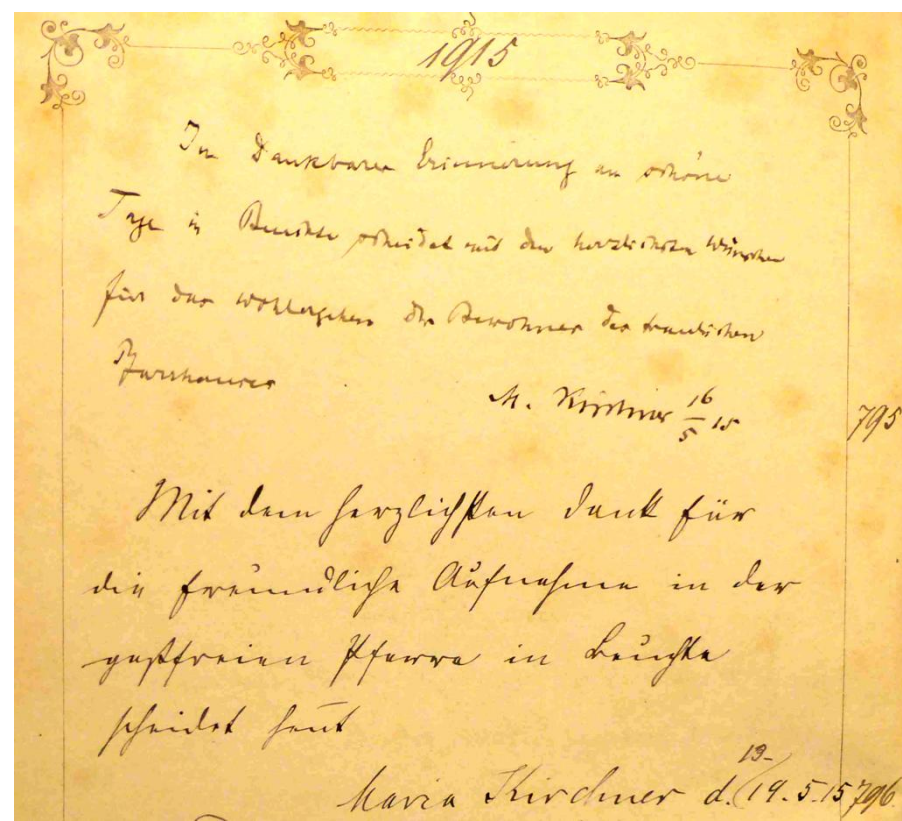 1915
In dankbarer Erinnerung an schöne
Tage in Beuchte scheidet mit den herzlichsten Wünschen
für das Wohlergehen der Bewohner des traulichen
Pfarrhauses
M. Kirchner 16/5 15
795
Mit dem herzlichsten Dank für
die freundliche Aufnahme in der
gastfreien Pfarre in Beuchte
scheidet heut
Maria Kirchner d. 13-/19.5.15 796.